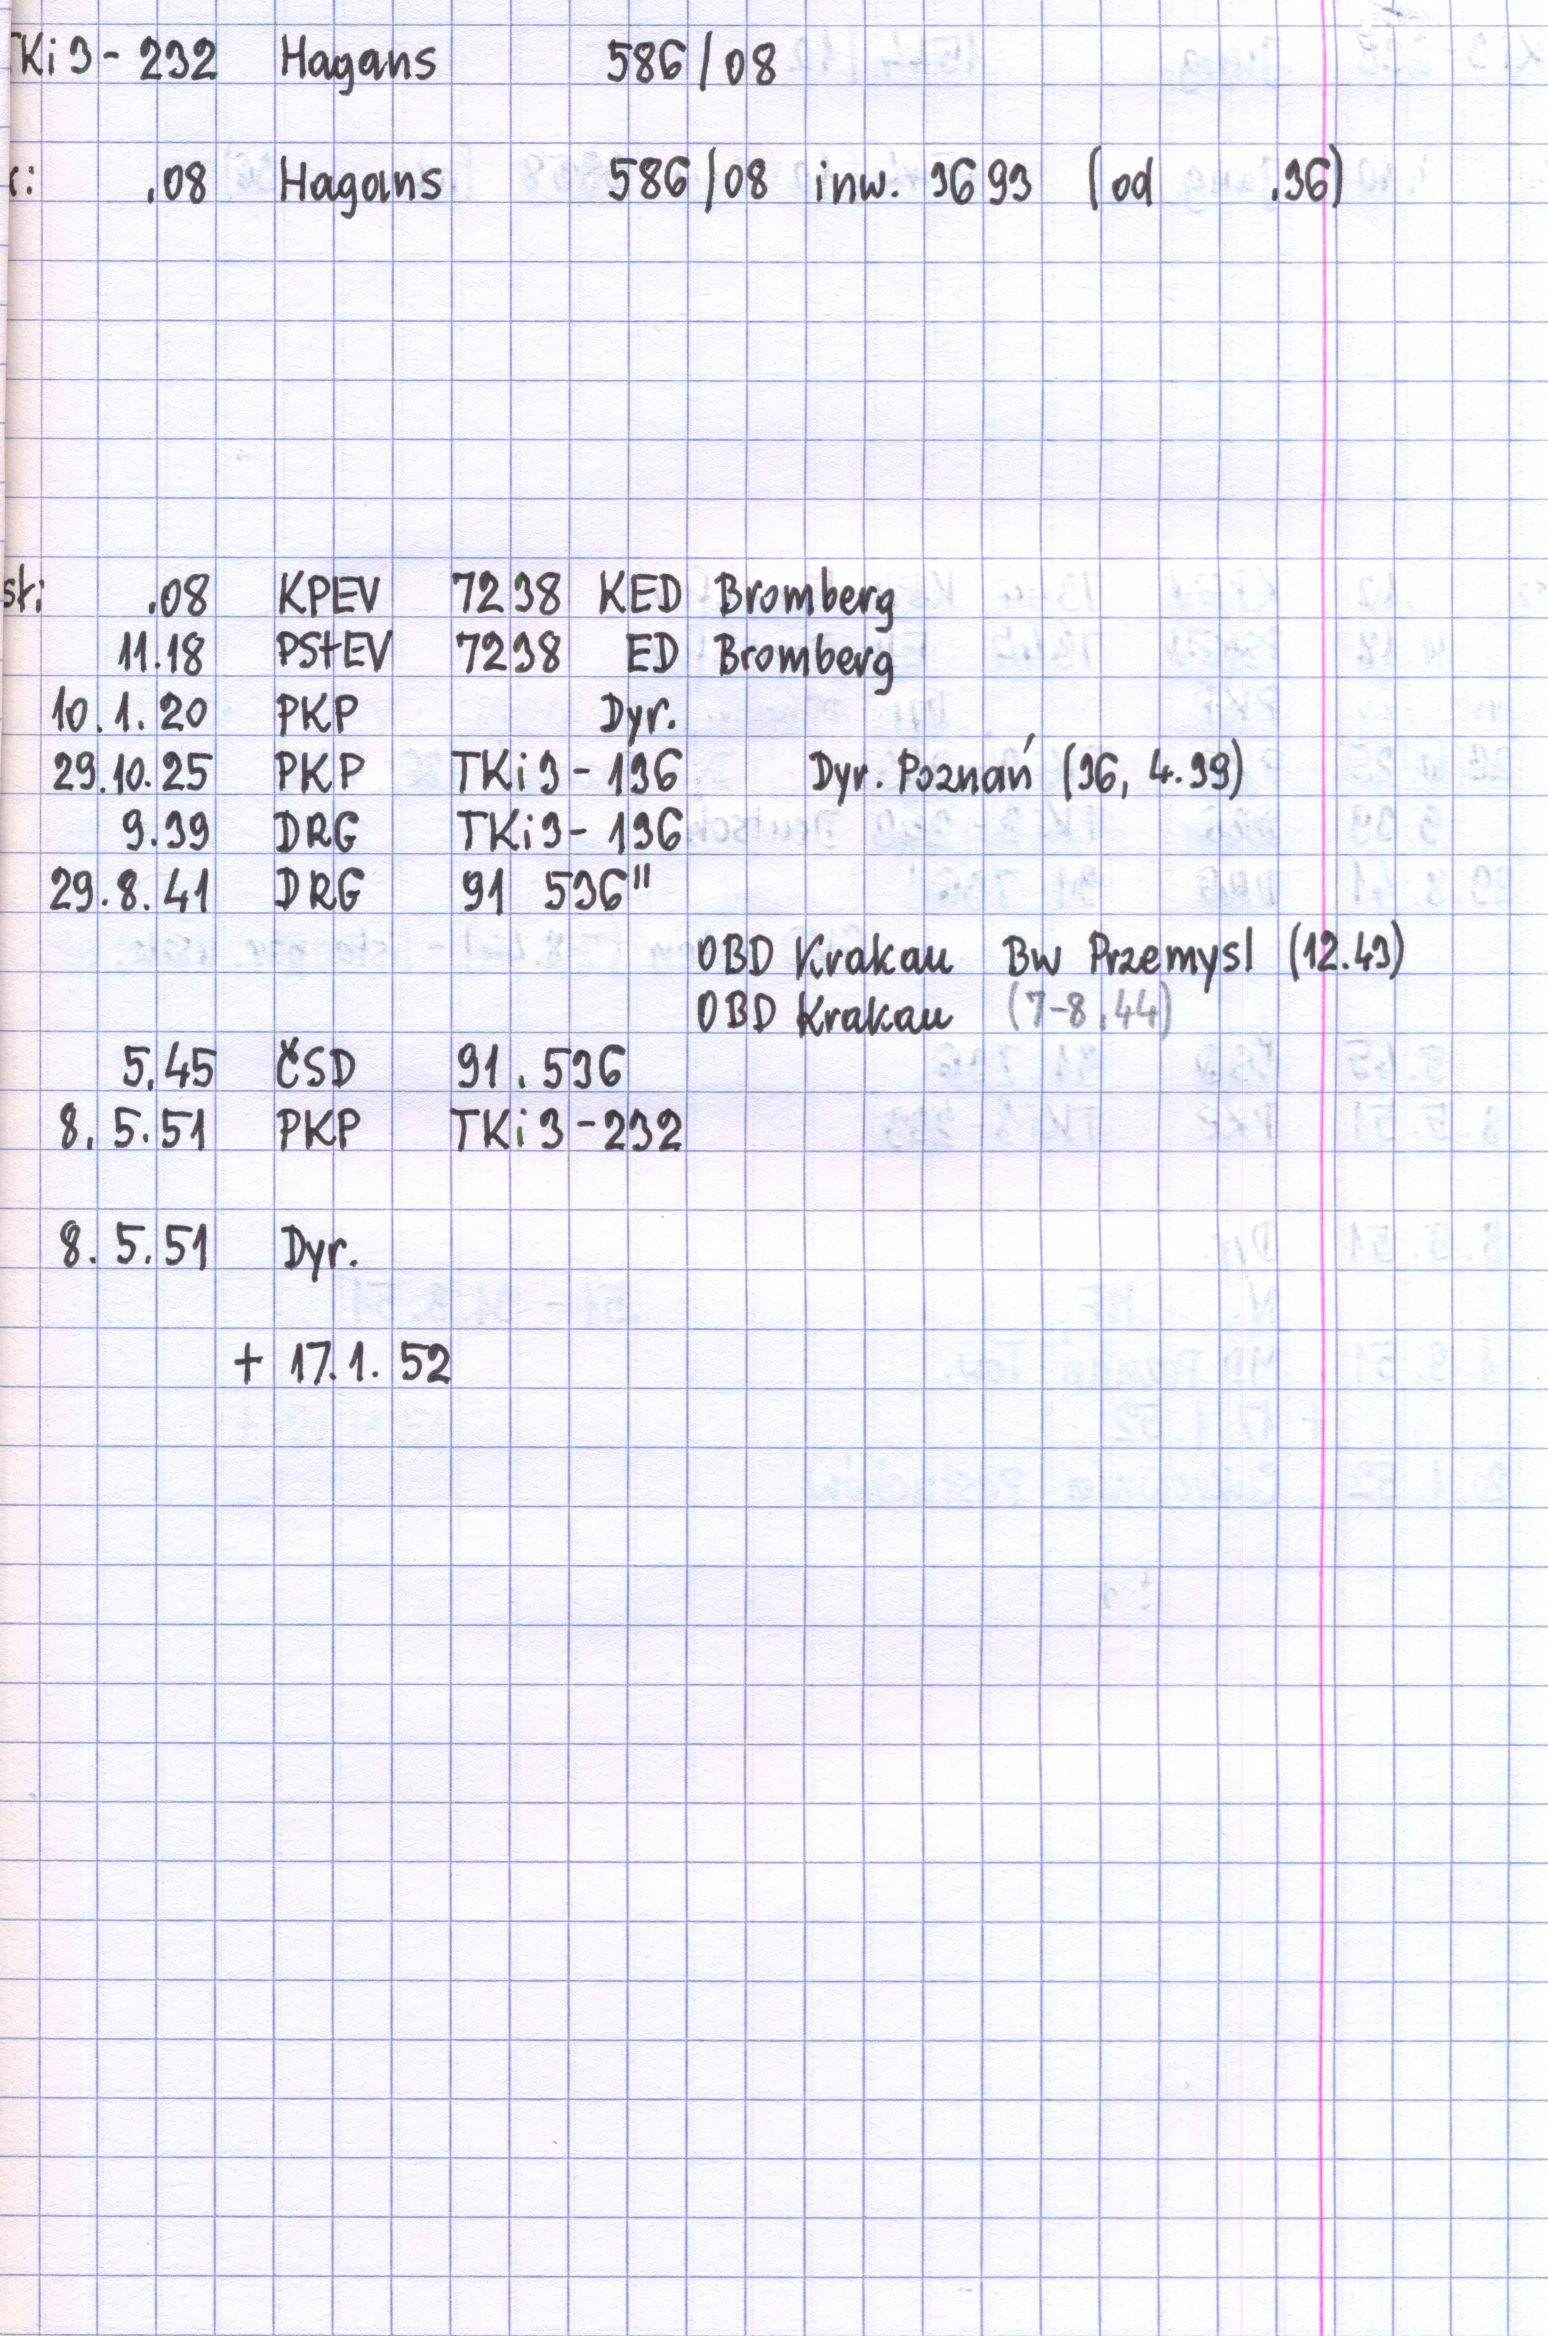 TKi3-232 Hagans 586/08
.08 Hagans 586/08 inw. 3693 (od .36)
st: .08 KPEV 7238 KED Bromberg
11.18 PStEV 7238 ED Bromberg
10.1.20 PKP Dyr.
29.10.25 PKP TKi3-136 Dyr. Poznań (36, 4.39)
9.39 DRG TKi3-136
29.8.41 DRG 91 536"
OBD Krakau Bw Przemysl (12.43)
OBD Krakau (7-8.44)
5.45 ČSD 91.536
8.5.51 PKP TKi3-232
8.5.51 Dyr.
+ 17.1.52